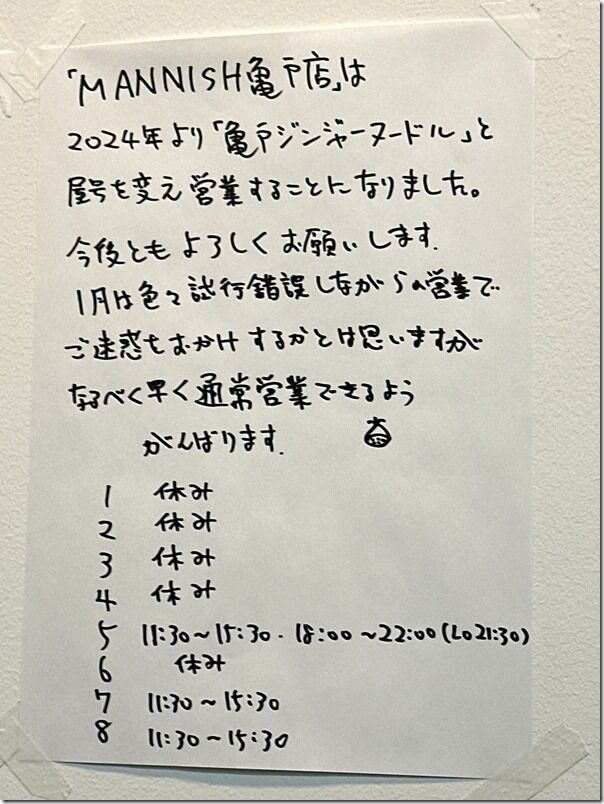 「MANNISH亀戸店」は
2024年より「亀戸ジンジャーヌードル」と
屋号を変え営業することになりました。
今後ともよろしくお願いします.
1月は色々試行錯誤しながらの営業で
ご迷惑をおかけするかとは思いますが
なるべく早く通常営業できるよう
がんばります.
1 休み
2 休み
3 休み
4 休み
5 11:30～15:30. 18:00～22:00(LO21:30)
6 休み
7 11:30～15:30
8 11:30～15:30